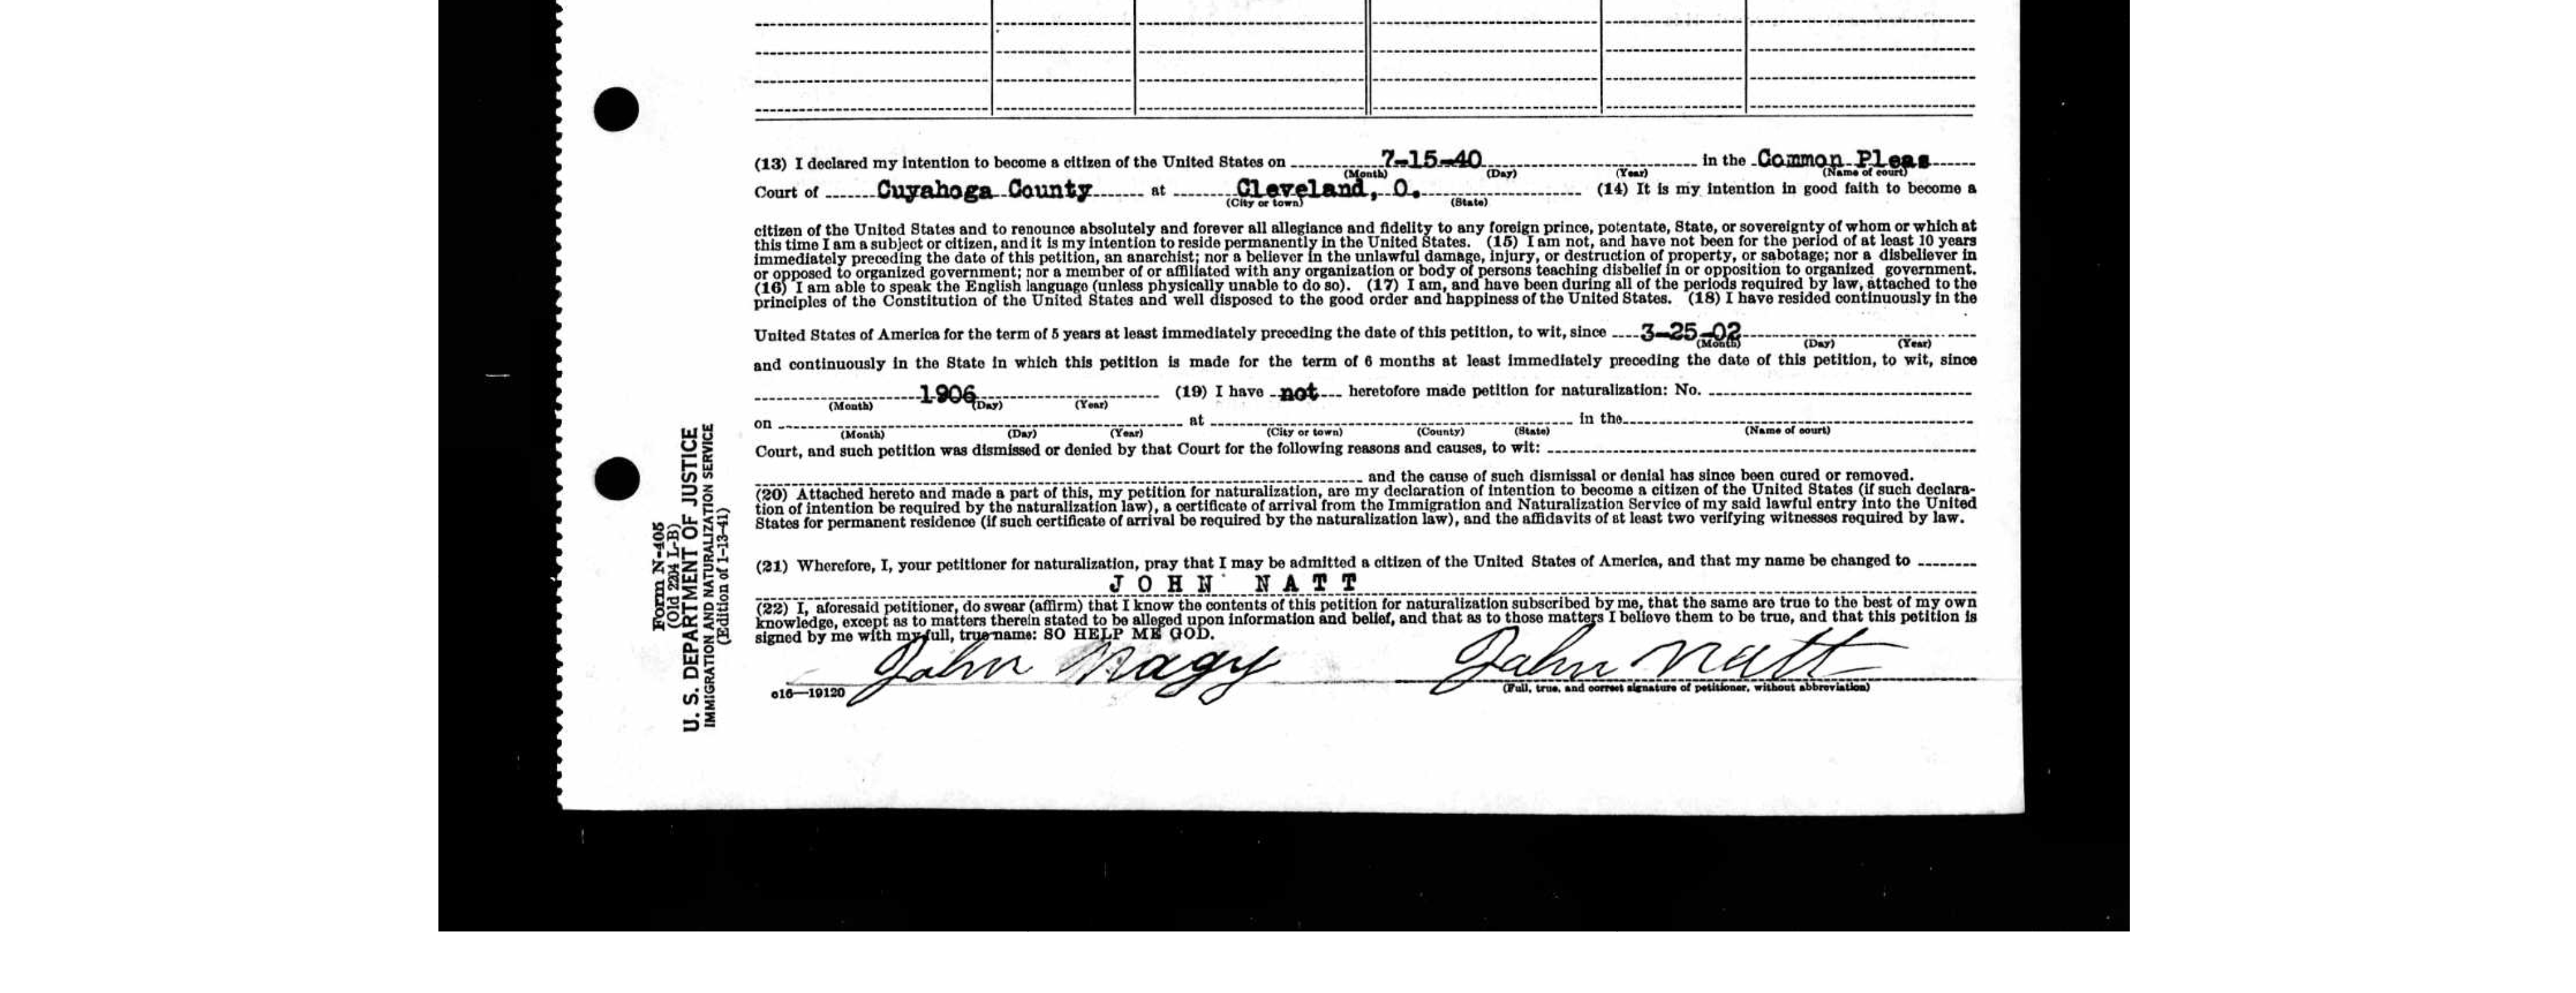 (13) I declared my intention to become a citizen of the United States on 7-15-40 in the Common Pleas
(Month) (Day) (Year) (Name of court)
Court of Cuyahoga County at Cleveland, O. (14) It is my intention in good faith to become a
(City or town) (State)
citizen of the United States and to renounce absolutely and forever all allegiance and fidelity to any foreign prince, potentate, State, or sovereignty of whom or which at
this time I am a subject or citizen, and it is my intention to reside permanently in the United States. (15) I am not, and have not been for the period of at least 10 years
immediately preceding the date of this petition, an anarchist; nor a believer in the unlawful damage, injury, or destruction of property, or sabotage; nor a disbeliever in
or opposed to organized government; nor a member of or affiliated with any organization or body of persons teaching disbelief in or opposition to organized government.
(16) I am able to speak the English language (unless physically unable to do so). (17) I am, and have been during all of the periods required by law, attached to the
principles of the Constitution of the United States and well disposed to the good order and happiness of the United States. (18) I have resided continuously in the
United States of America for the term of 5 years at least immediately preceding the date of this petition, to wit, since 3-25-02
(Month) (Day) (Year)
and continuously in the State in which this petition is made for the term of 6 months at least immediately preceding the date of this petition, to wit, since
1906 (19) I have not heretofore made petition for naturalization: No.
(Month) (Day) (Year)
on at in the
(Month) (Day) (Year) (City or town) (County) (State) (Name of court)
Court, and such petition was dismissed or denied by that Court for the following reasons and causes, to wit:
and the cause of such dismissal or denial has since been cured or removed.
(20) Attached hereto and made a part of this, my petition for naturalization, are my declaration of intention to become a citizen of the United States (if such declara-
tion of intention be required by the naturalization law), a certificate of arrival from the Immigration and Naturalization Service of my said lawful entry into the United
States for permanent residence (if such certificate of arrival be required by the naturalization law), and the affidavits of at least two verifying witnesses required by law.
(21) Wherefore, I, your petitioner for naturalization, pray that I may be admitted a citizen of the United States of America, and that my name be changed to
JOHN NATT
(22) I, aforesaid petitioner, do swear (affirm) that I know the contents of this petition for naturalization subscribed by me, that the same are true to the best of my own
knowledge, except as to matters therein stated to be alleged upon information and belief, and that as to those matters I believe them to be true, and that this petition is
signed by me with my full, true name: SO HELP ME GOD.
John Nagy John Natt
o16—19120 (Full, true, and correct signature of petitioner, without abbreviation)
Form N-405
(Old 2204 L-B)
U. S. DEPARTMENT OF JUSTICE
IMMIGRATION AND NATURALIZATION SERVICE
(Edition of 1-13-41)